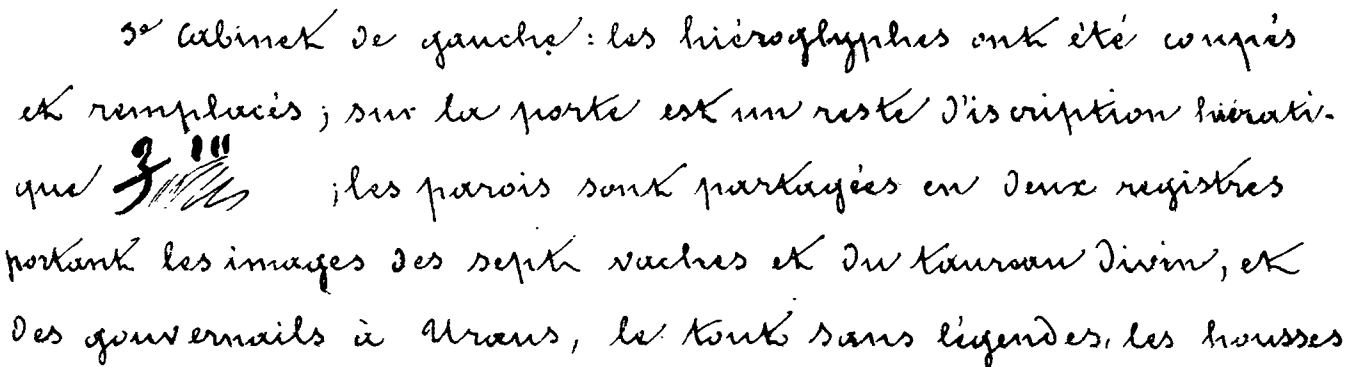 3e Cabinet de gauche : les hiéroglyphes ont été coupés
et remplacés ; sur la porte est un reste d'iscription hiérati-
que ; les parois sont partagées en deux registres
portant les images des sept vaches et du taureau divin, et
des gouvernails à Uraus, le tout sans légendes, les housses